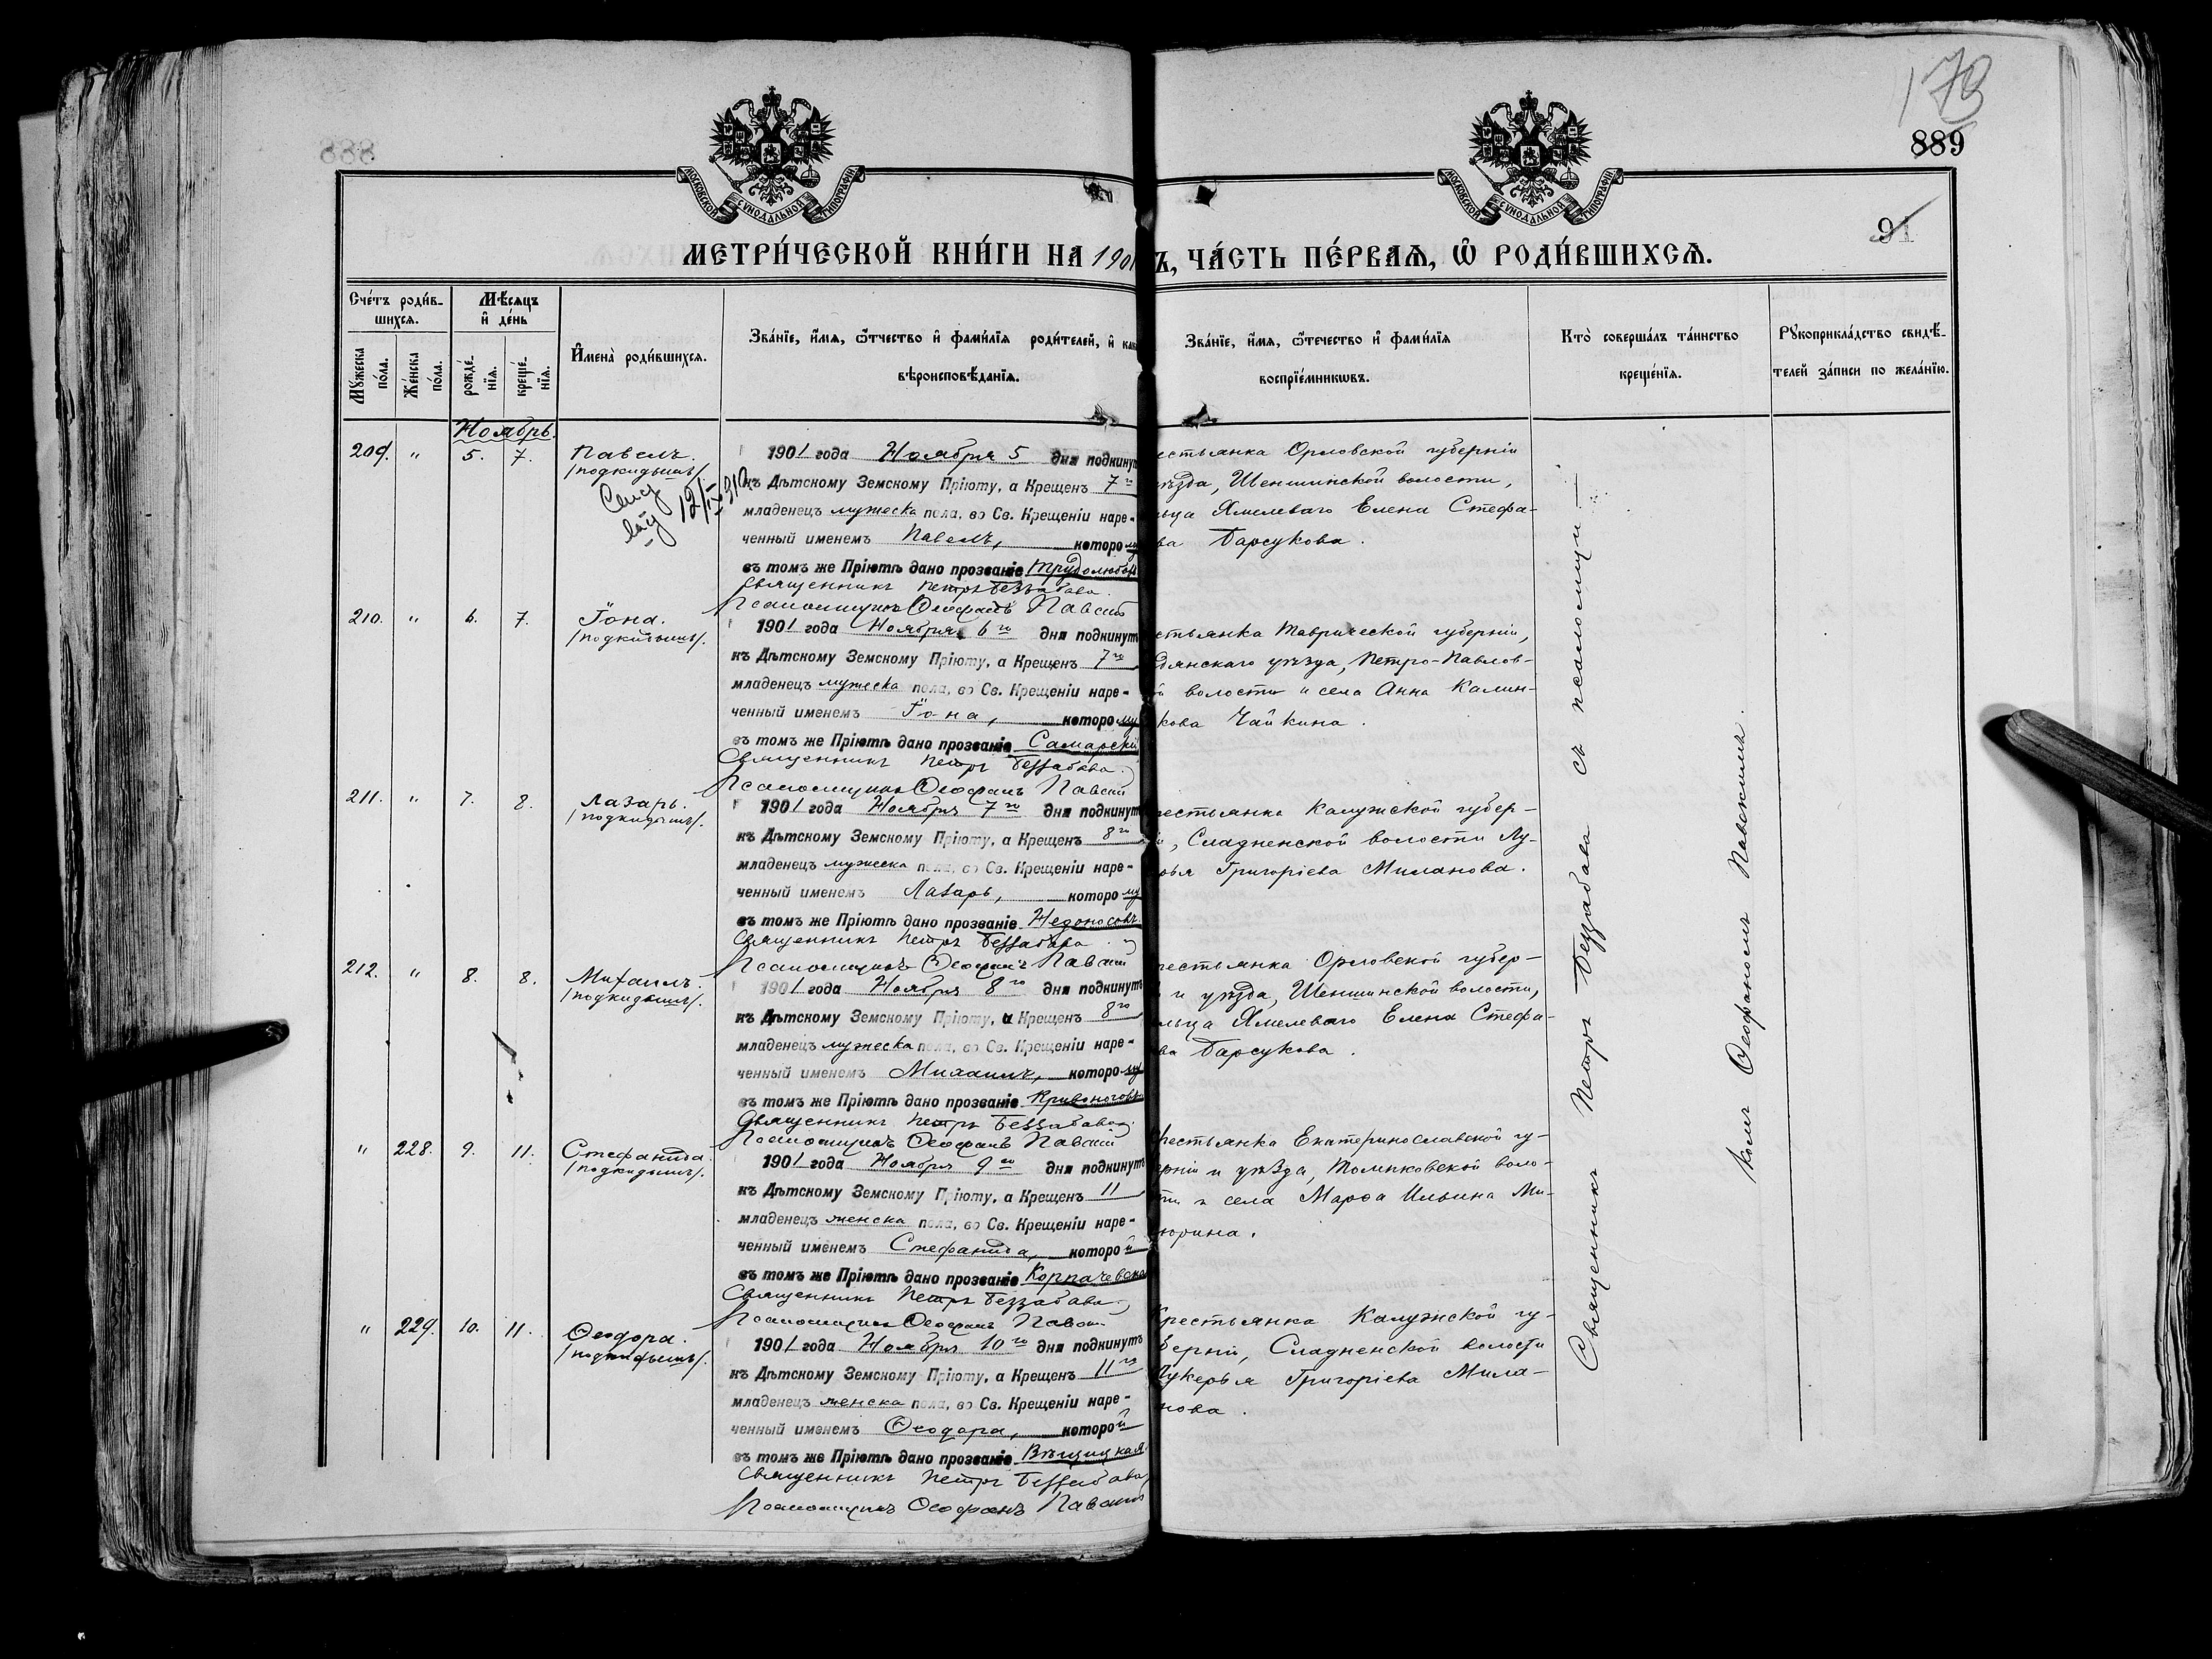 888
173
889
91
МОСКОВСКОЙ СУНОДАЛЬНОЙ ТИПОГРАФІИ
МОСКОВСКОЙ СУНОДАЛЬНОЙ ТИПОГРАФІИ
МЕТРИ́ЧЕСКОЙ КНИ́ГИ НА 1901
Ъ, ЧА́СТЬ ПЕ́РВАѦ, Ѿ РОДИ́ВШИХСѦ.
Сче́тъ роди́в-
шихсѧ.
Мꙋ́жеска по́ла.
Же́нска по́ла.
Мѣ́сѧцъ
и҆ де́нь
рожде́-
нїѧ.
креще́-
нїѧ.
И҆мена̀ роди́вшихсѧ.
Зва́нїе, и҆́мѧ, ѻ҆́тчество и҆ фами́лїѧ роди́телей, и҆ как
вѣроисповѣ́данїѧ.
Зва́нїе, и҆́мѧ, ѻ҆те́чество и҆ фами́лїѧ
воспрїе́мникѡвъ.
Кто̀ соверша́лъ та́инство
креще́нїѧ.
Рꙋкоприкла́дство свидѣ́-
телей за́писи по жела́нїю.
Ноябрь.
209. " 5. 7. Павелъ.
/подкидышъ/.
1901 года Ноября 5 дня подкинут
къ Дѣтскому Земскому Пріюту, а Крещенъ 7го
младенецъ мужеска пола, во Св. Крещеніи наре-
ченный именемъ Павелъ, которому
въ томъ же Пріютѣ дано прозваніе Трудолюбов
Священникъ Петръ Беззабава.
Псаломщикъ Ѳеофанъ Павскій
естьянка Орловской губерніи
ѣзда, Шеншинской волости,
ьца Хмелеваго Елена Стефа-
ва Барсукова.
210. " 6. 7. Іона.
/подкидышъ/.
1901 года Ноября 6го дня подкинут
къ Дѣтскому Земскому Пріюту, а Крещенъ 7го
младенецъ мужеска пола, во Св. Крещеніи наре-
ченный именемъ Іона, которому
въ томъ же Пріютѣ дано прозваніе Самарскій
Священникъ Петръ Беззабава.
Псаломщикъ Ѳеофанъ Павскій
стьянка Таврической губерніи,
дянскаго уѣзда, Петро-Павлов-
й волости и села Анна Калин-
кова Чайкина.
211. " 7. 8. Лазарь.
/подкидышъ/.
1901 года Ноября 7го дня подкинут
къ Дѣтскому Земскому Пріюту, а Крещенъ 8го
младенецъ мужеска пола, во Св. Крещеніи наре-
ченный именемъ Лазарь, которому
въ томъ же Пріютѣ дано прозваніе Недоносовъ
Священникъ Петръ Беззабава.
Псаломщикъ Ѳеофанъ Павскій
рестьянка Калужской губер-
и, Сладненской волости Лу-
рья Григоріева Миланова.
212. " 8. 8. Михаилъ.
/подкидышъ/.
1901 года Ноября 8го дня подкинутъ
къ Дѣтскому Земскому Пріюту, а Крещенъ 8го
младенецъ мужеска пола, во Св. Крещеніи наре-
ченный именемъ Михаилъ, которому
въ томъ же Пріютѣ дано прозваніе Кривоноговъ
Священникъ Петръ Беззабава.
Псаломщикъ Ѳеофанъ Павскій
рестьянка Орловской губер-
и уѣзда, Шеншинской волости,
льца Хмелеваго Елена Стефа-
ва Барсукова.
" 228. 9. 11. Стефанида.
/подкидышъ/.
1901 года Ноября 9го дня подкинутъ
къ Дѣтскому Земскому Пріюту, а Крещенъ 11
младенецъ женска пола, во Св. Крещеніи наре-
ченный именемъ Стефанида, которой
въ томъ же Пріютѣ дано прозваніе Корпачевска
Священникъ Петръ Беззабава.
Псаломщикъ Ѳеофанъ Павскій
рестьянка Екатеринославской гу-
рніи и уѣзда, Томаковской воло-
ти и села Марѳа Ильина Ми-
юрина.
" 229. 10. 11. Ѳеодора.
/подкидышъ/.
1901 года Ноября 10го дня подкинутъ
къ Дѣтскому Земскому Пріюту, а Крещенъ 11го
младенецъ женска пола, во Св. Крещеніи наре-
ченный именемъ Ѳеодора, которой
въ томъ же Пріютѣ дано прозваніе Вѣщицкая
Священникъ Петръ Беззабава
Псаломщикъ Ѳеофанъ Павскій
Крестьянка Калужской гу-
берніи, Сладненской волости
Лукерья Григоріева Мила-
нова.
Священникъ Петръ Беззабава съ псаломщи-
комъ Ѳеофаномъ Павскимъ.